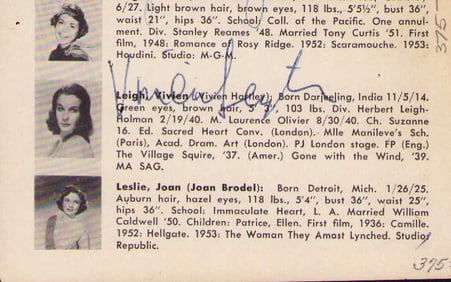 6/27. Light brown hair, brown eyes, 118 lbs., 5'5½", bust 36",
waist 21", hips 36". School: Coll. of the Pacific. One annul-
ment. Div. Stanley Reames '48. Married Tony Curtis '51. First
film, 1948: Romance of Rosy Ridge. 1952: Scaramouche. 1953:
Houdini. Studio: M-G-M.
Vivien Leigh
Leigh, Vivien (Vivien Hartley): Born Darjeeling, India 11/5/14.
Green eyes, brown hair, 5' 3", 103 lbs. Div. Herbert Leigh-
Holman 2/19/40. M. Laurence Olivier 8/30/40. Ch. Suzanne
16. Ed. Sacred Heart Conv. (London). Mlle Manileve's Sch.
(Paris), Acad. Dram. Art (London). PJ London stage. FP (Eng.)
The Village Squire, '37. (Amer.) Gone with the Wind, '39.
MA SAG.
Leslie, Joan (Joan Brodel): Born Detroit, Mich. 1/26/25.
Auburn hair, hazel eyes, 118 lbs., 5'4", bust 36", waist 25",
hips 36". School: Immaculate Heart, L. A. Married William
Caldwell '50. Children: Patrice, Ellen. First film, 1936: Camille.
1952: Hellgate. 1953: The Woman They Amost Lynched. Studio:
Republic.
375-
375-